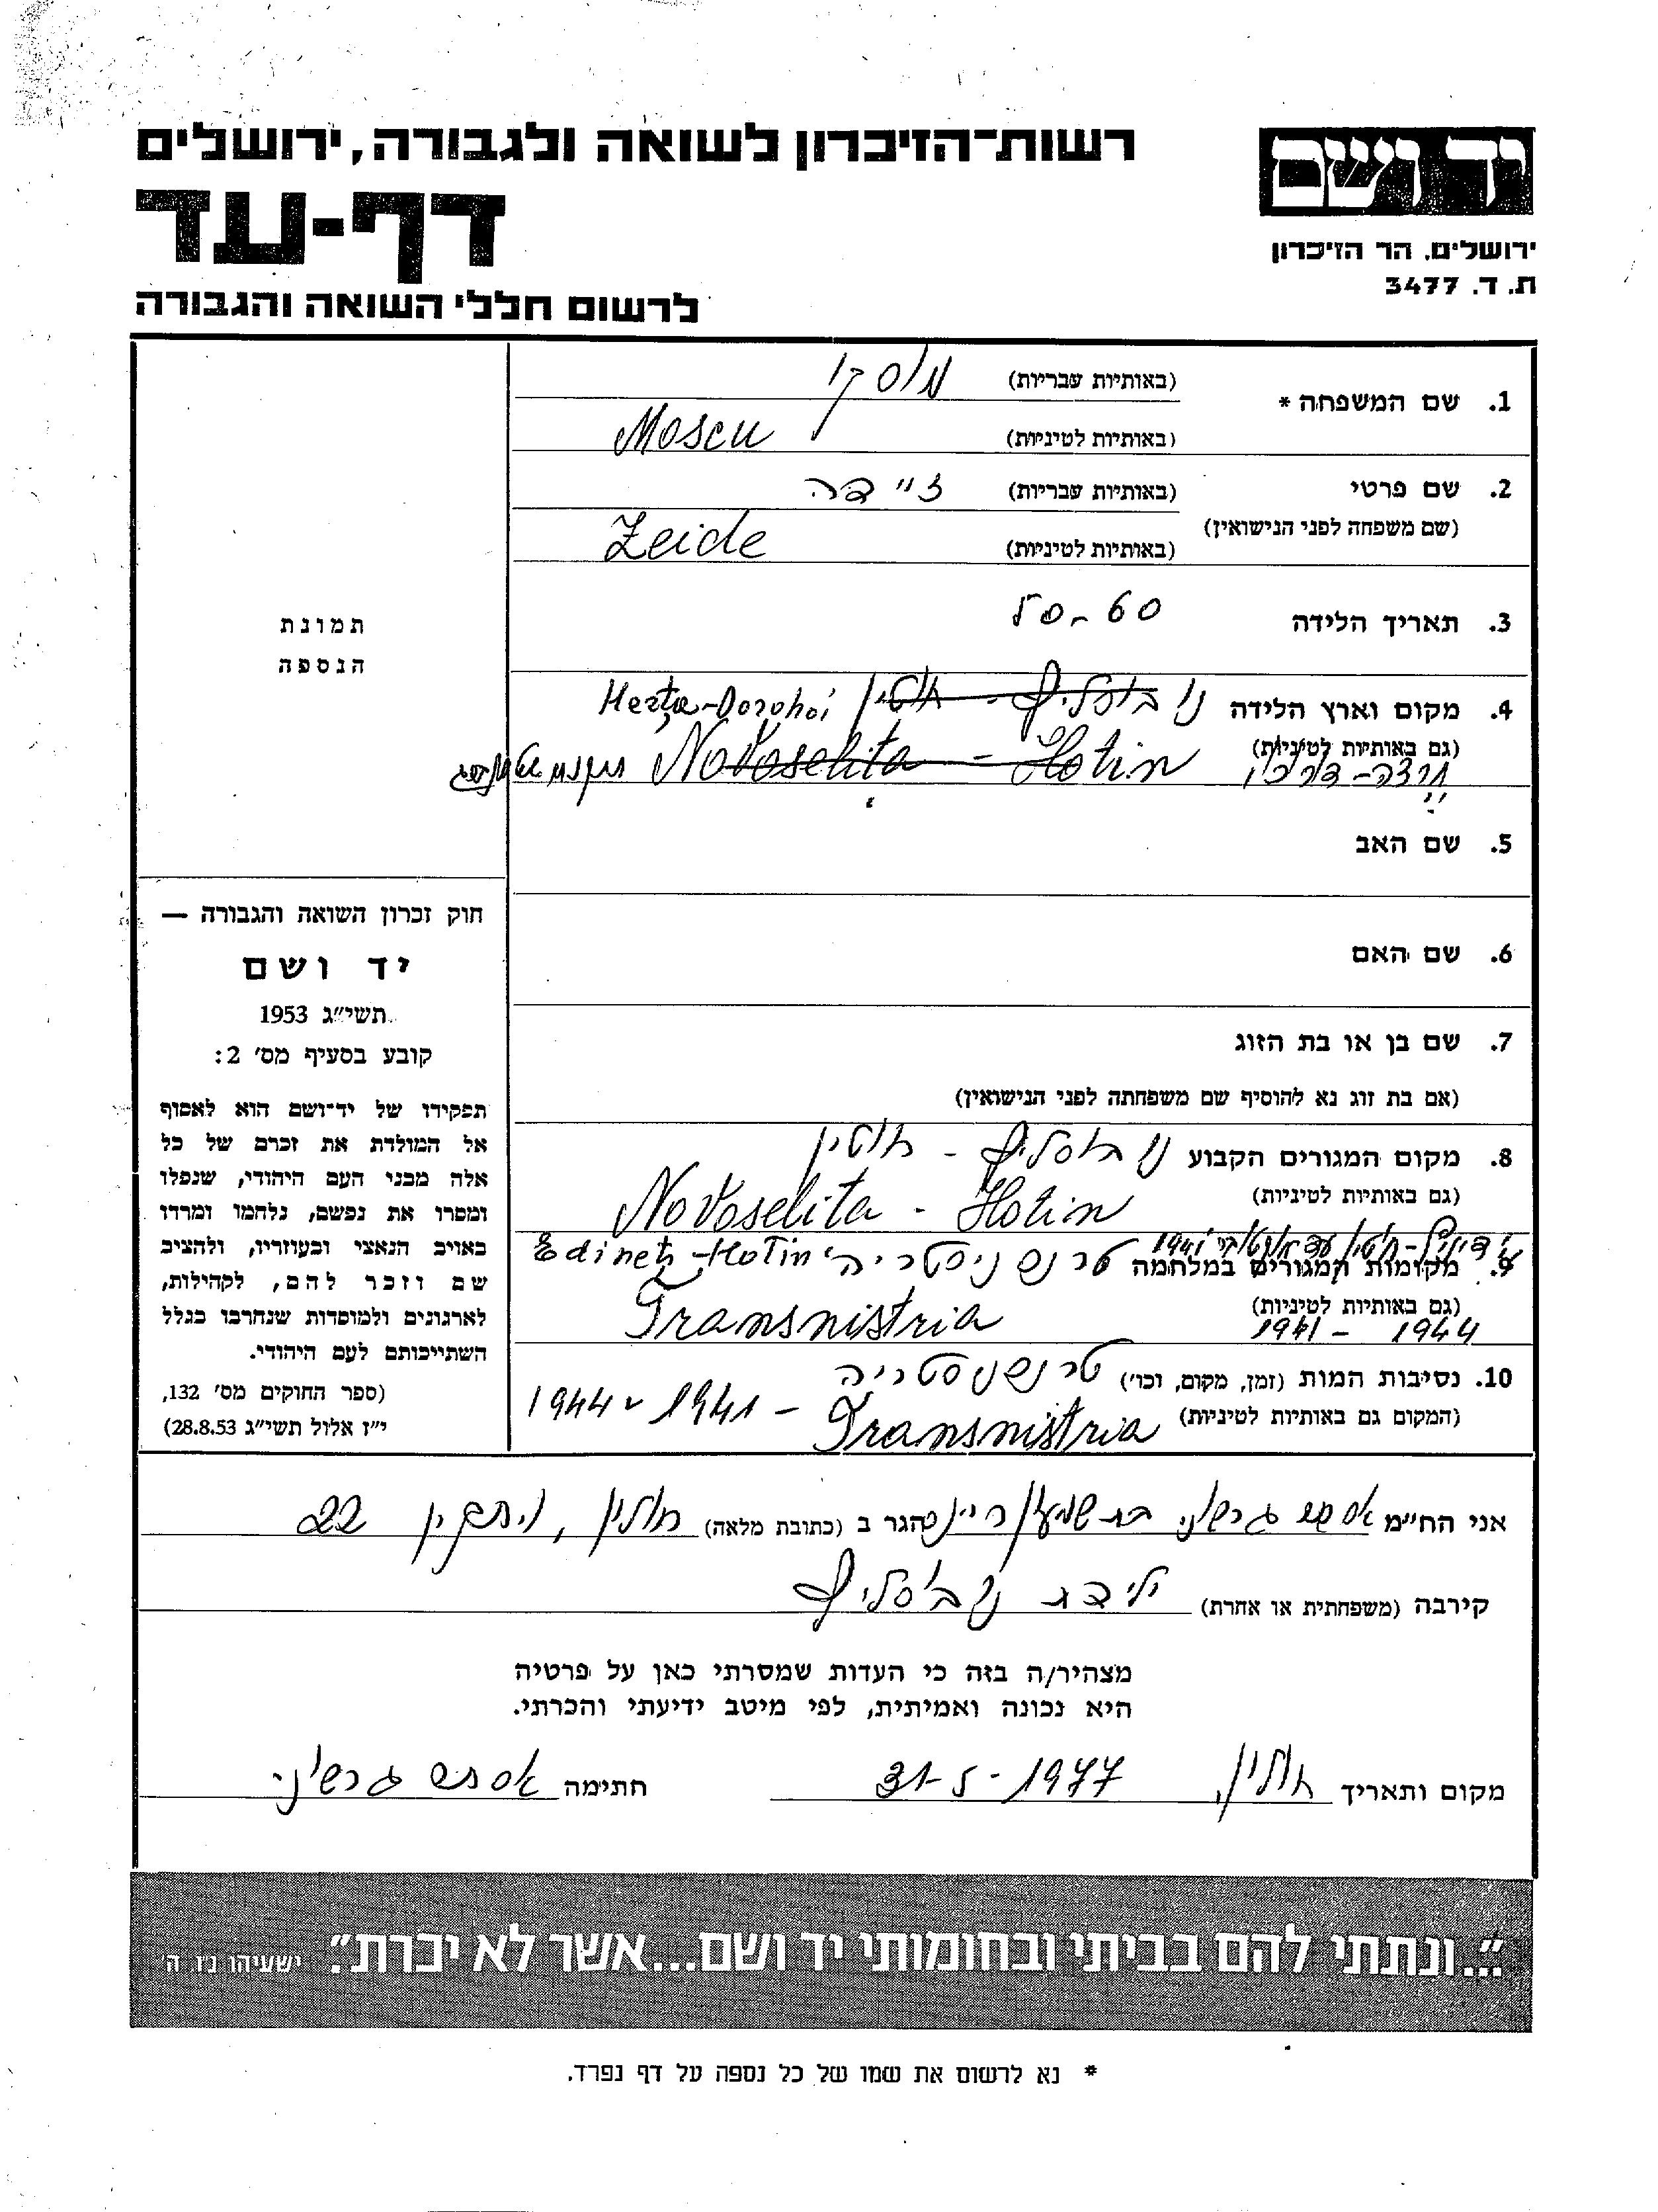 רשות־הזיכרון לשואה ולגבורה, ירושלים
דף-עד
לרשום חללי השואה והגבורה
יד ושם
ירושלים, הר הזיכרון
ת. ד. 3477
1. שם המשפחה *
(באותיות עבריות) מוסקו
(באותיות לטיניות) Moscu
2. שם פרטי
(שם משפחה לפני הנישואין)
(באותיות עבריות) זיידה
(באותיות לטיניות) Zeide
3. תאריך הלידה 50-60
4. מקום וארץ הלידה נובוסליץ - חוטין Herța-Dorohoi
(גם באותיות לטיניות) Novoselita - Hotin
5. שם האב
6. שם האם
7. שם בן או בת הזוג
(אם בת זוג נא להוסיף שם משפחתה לפני הנישואין)
8. מקום המגורים הקבוע נובוסליץ - חוטין
(גם באותיות לטיניות) Novoselita - Hotin
1941
9. מקומות המגורים במלחמה טרנסניסטריה Edineț-Hotin
(גם באותיות לטיניות) Transnistria
1941 - 1944
10. נסיבות המות (זמן, מקום, וכו') טרנסניסטריה
(המקום גם באותיות לטיניות) Transnistria - 1941 1944
תמונת
הנספה
חוק זכרון השואה והגבורה —
יד ושם
תשי״ג 1953
קובע בסעיף מס׳ 2:
תפקידו של יד־ושם הוא לאסוף
אל המולדת את זכרם של כל
אלה מבני העם היהודי, שנפלו
ומסרו את נפשם, נלחמו ומרדו
באויב הנאצי ובעוזריו, ולהציב
שם וזכר להם, לקהילות,
לארגונים ולמוסדות שנחרבו בגלל
השתייכותם לעם היהודי.
(ספר החוקים מס׳ 132,
י״ז אלול תשי״ג 28.8.53)
אני הח״מ אסתר גרשוני בת שמעון הגר ב (כתובת מלאה) חולון, 22
קירבה (משפחתית או אחרת) ילידת נובוסליץ
מצהיר/ה בזה כי העדות שמסרתי כאן על פרטיה
היא נכונה ואמיתית, לפי מיטב ידיעתי והכרתי.
מקום ותאריך חולון, 31-5-1977 חתימה אסתר גרשוני
״...ונתתי להם בביתי ובחומותי יד ושם...אשר לא יכרת״. ישעיהו נ״ו ה׳
* נא לרשום את שמו של כל נספה על דף נפרד.